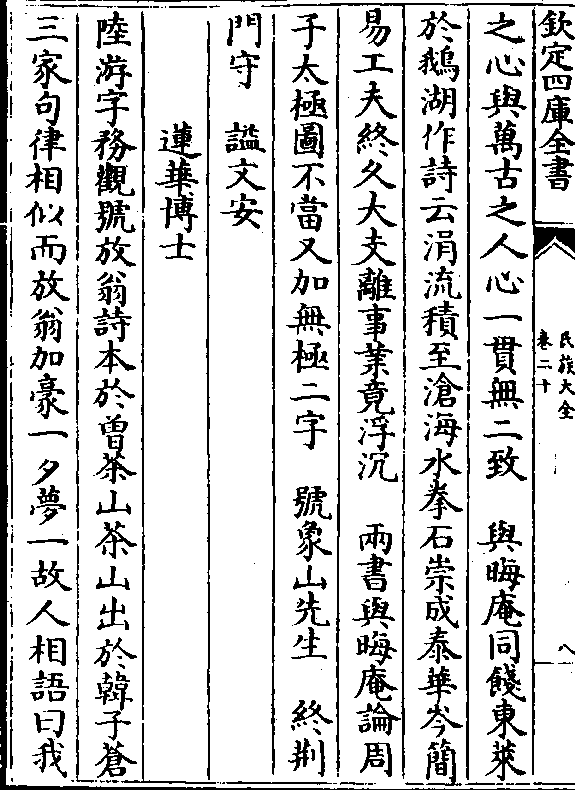 欽定四庫全書
民族大全
卷二十
八
之心與萬古之人心一貫無二致　與晦庵同餞東萊
於鵝湖作詩云涓流積至滄海水拳石崇成泰華岑簡
易工夫終久大支離事業竟浮沉　兩書與晦庵論周
子太極圖不當又加無極二字　號象山先生　終荆
門守　諡文安
蓮華博士
陸游字務觀號放翁詩本於曾茶山茶山出於韓子蒼
三家句律相似而放翁加豪一夕夢一故人相語曰我